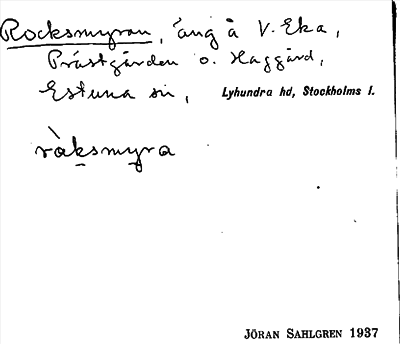 Rocksmyran, äng å V. Eka,
Prästgården o. Haggård,
Estuna sn, Lyhundra hd, Stockholms l.
ràksmyra
JÖRAN SAHLGREN 1937